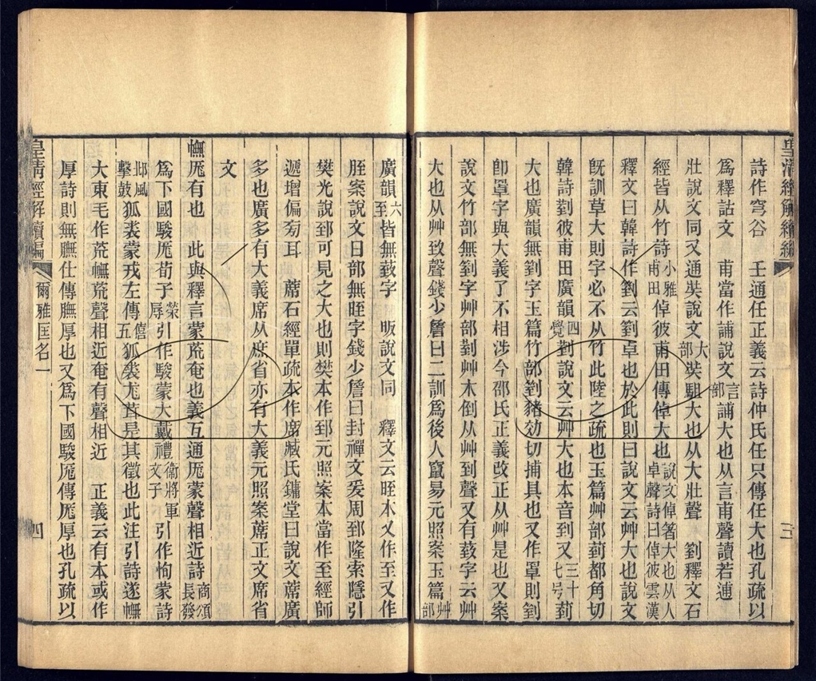 皇清經解續編
三
詩作穹谷　壬通任正義云詩仲氏任只傳任大也孔疏以
爲釋詁文　甫當作誧說文言部誧大也从言甫聲讀若逋
壯說文同又通奘說文大部奘駔大也从大壯聲　釋文石
經皆从竹詩小雅甫田倬彼甫田傳倬大也說文倬箸大也从人卓聲詩曰倬彼雲漢
釋文曰韓詩作劉云劉卓也於此則曰說文云艸大也說文
旣訓草大則字必不从竹此陸之疏也玉篇艸部菿都角切
韓詩菿彼甫田廣韻四覺菿說文云艸大也本音到又三十七号菿
大也廣韻無劉字玉篇竹部劉豬效切捕具也又作罩則劉
卽罩字與大義了不相涉今邵氏正義改正从艸是也又案
說文竹部無劉字艸部菿艸木倒从艸到聲又有蔜字云艸
大也从艸致聲錢少詹曰二訓爲後人竄易元照案玉篇艸部
廣韻六至皆無蔜字　昄說文同　釋文云晊本又作至又作
胵案說文日部無晊字錢少詹曰封禪文爰周郅隆索隱引
樊光說郅可見之大也則樊本作郅元照案本當作至經師
遞增偏㫄耳　蓆石經單疏本作席臧氏鏞堂曰說文蓆廣
多也廣多有大義席从庶省亦有大義元照案蓆正文席省
文
幠厖有也　此與釋言蒙荒奄也義互通厖蒙聲相近詩商頌長發
爲下國駿厖荀子榮辱引作駿蒙大戴禮衞將軍文子引作恂蒙詩
邶風擊鼓狐裘蒙戎左傳僖五狐裘尨茸是其徵也此注引詩遂幠
大東毛作荒幠荒聲相近奄有聲相近　正義云有本或作
厚詩則無膴仕傳膴厚也又爲下國駿厖傳厖厚也孔疏以
皇清經解續編
爾雅匡名一
四